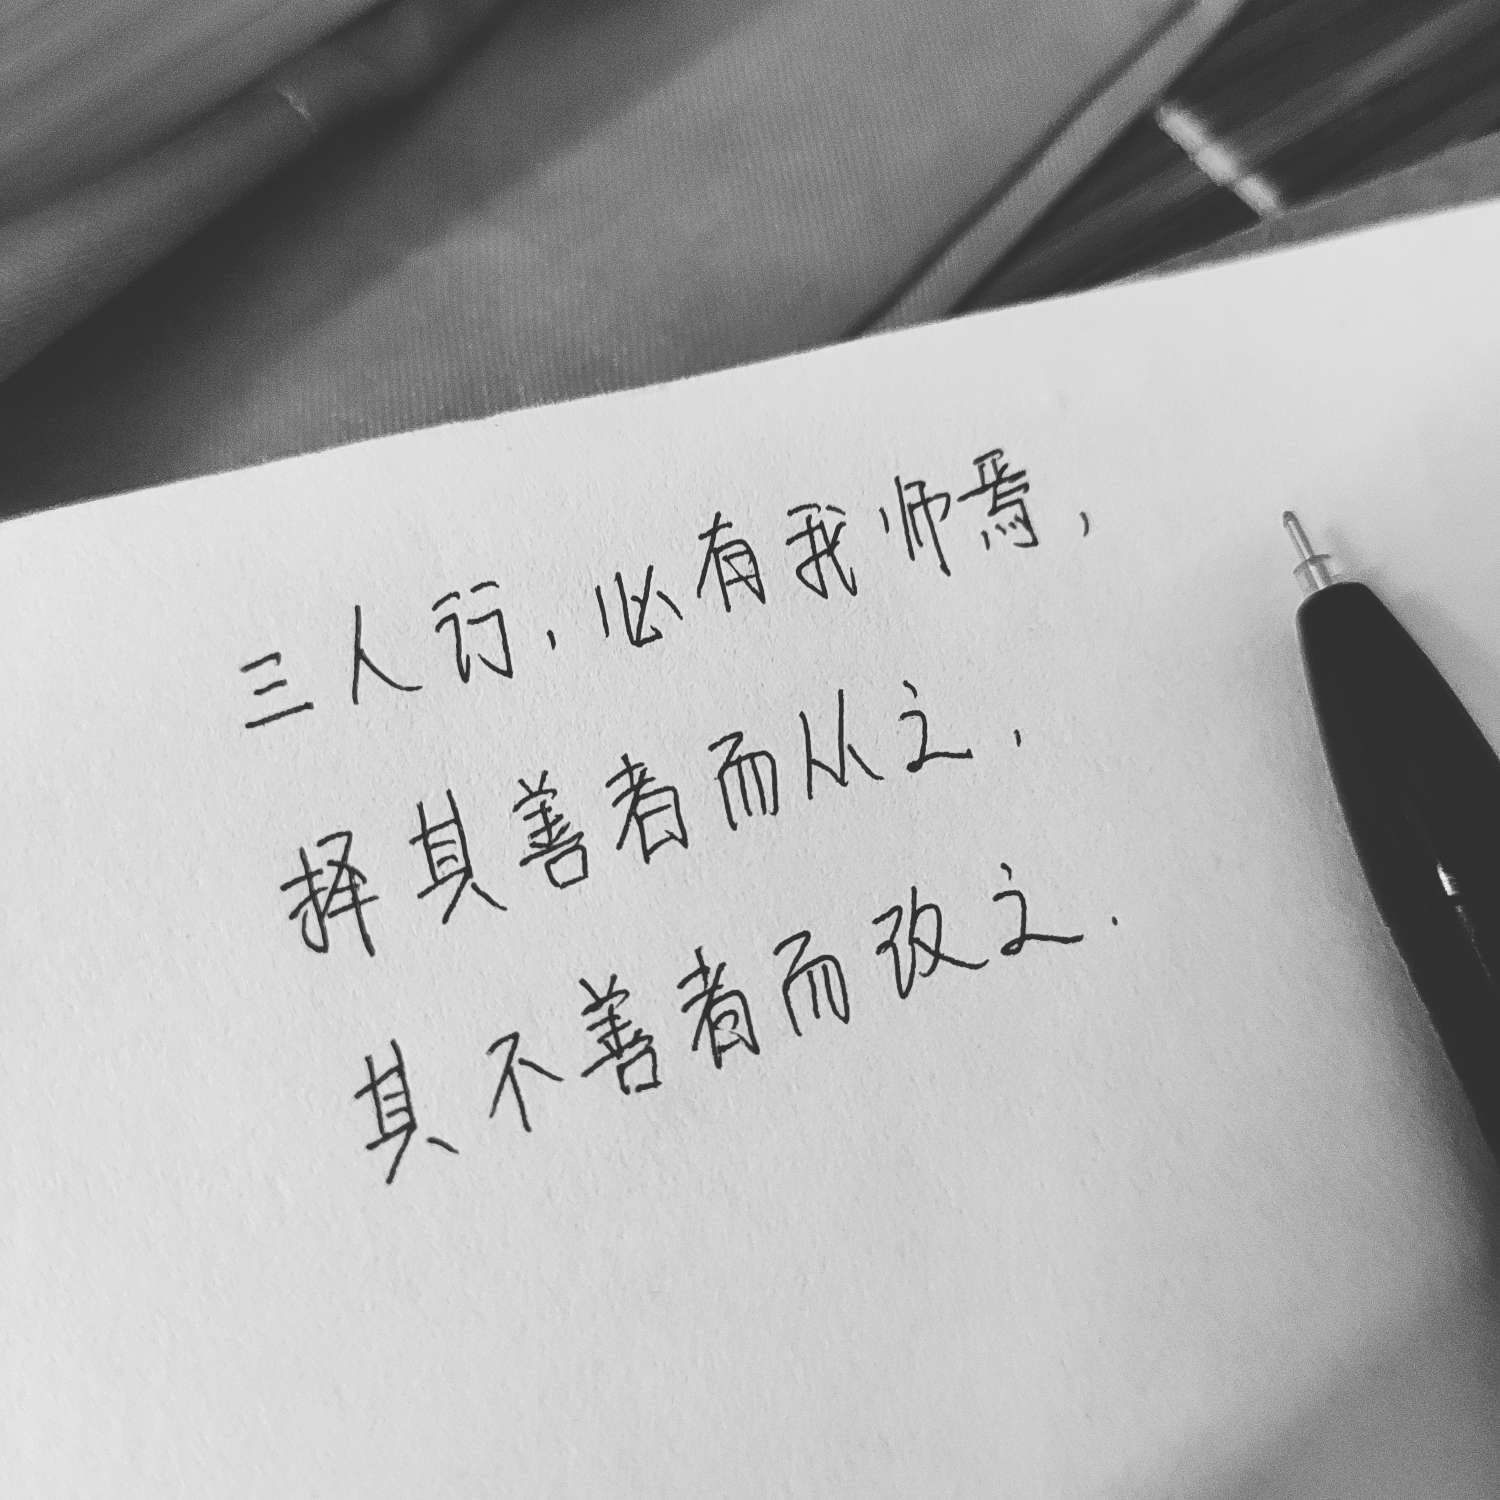 三人行，必有我师焉，
择其善者而从之，
其不善者而改之.